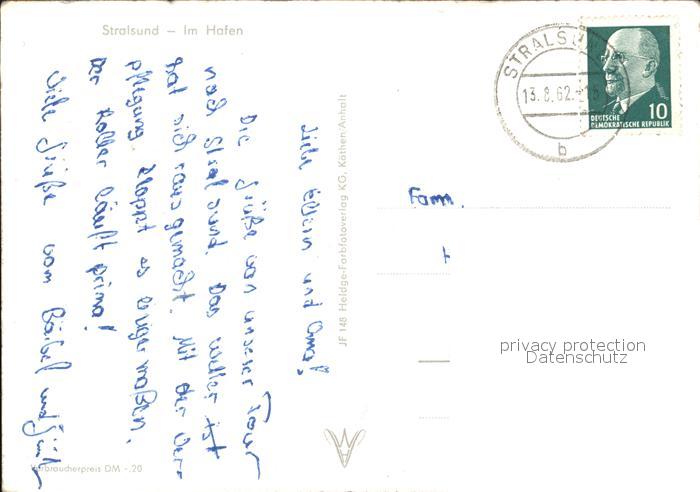 Stralsund – Im Hafen
Liebe Eltern und Oma!
Die Grüße von unserer Tour
nach Stralsund. Das Wetter ist
hat sich rausgemacht. Mit der Ver-
pflegung klappt es einigermaßen.
Der Roller läuft prima!
Viele Grüße von Bärbel und
Verbraucherpreis DM -.20
JF 148 Heldge-Farbfotoverlag KG, Köthen/Anhalt
STRALSUND
13.8.62
b
10
DEUTSCHE
DEMOKRATISCHE REPUBLIK
Fam.
privacy protection
Datenschutz